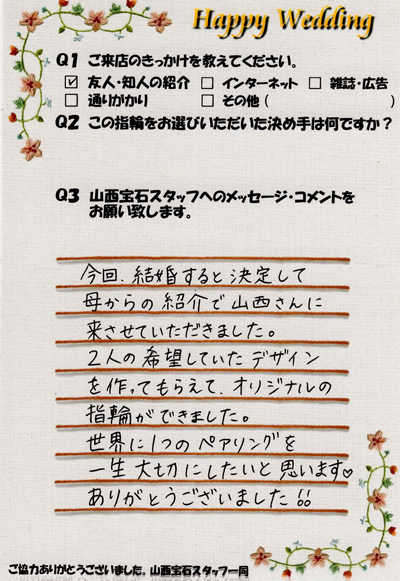 Happy Wedding
Q1 ご来店のきっかけを教えてください。
☑ 友人・知人の紹介 □ インターネット □ 雑誌・広告
□ 通りがかり □ その他 ( )
Q2 この指輪をお選びいただいた決め手は何ですか？
Q3 山西宝石スタッフへのメッセージ・コメントを
お願い致します。
今回、結婚すると決定して
母からの紹介で山西さんに
来させていただきました。
2人の希望していたデザイン
を作ってもらえて、オリジナルの
指輪ができました。
世界に1つのペアリングを
一生大切にしたいと思います♡
ありがとうございました!!
ご協力ありがとうございました。山西宝石スタッフ一同